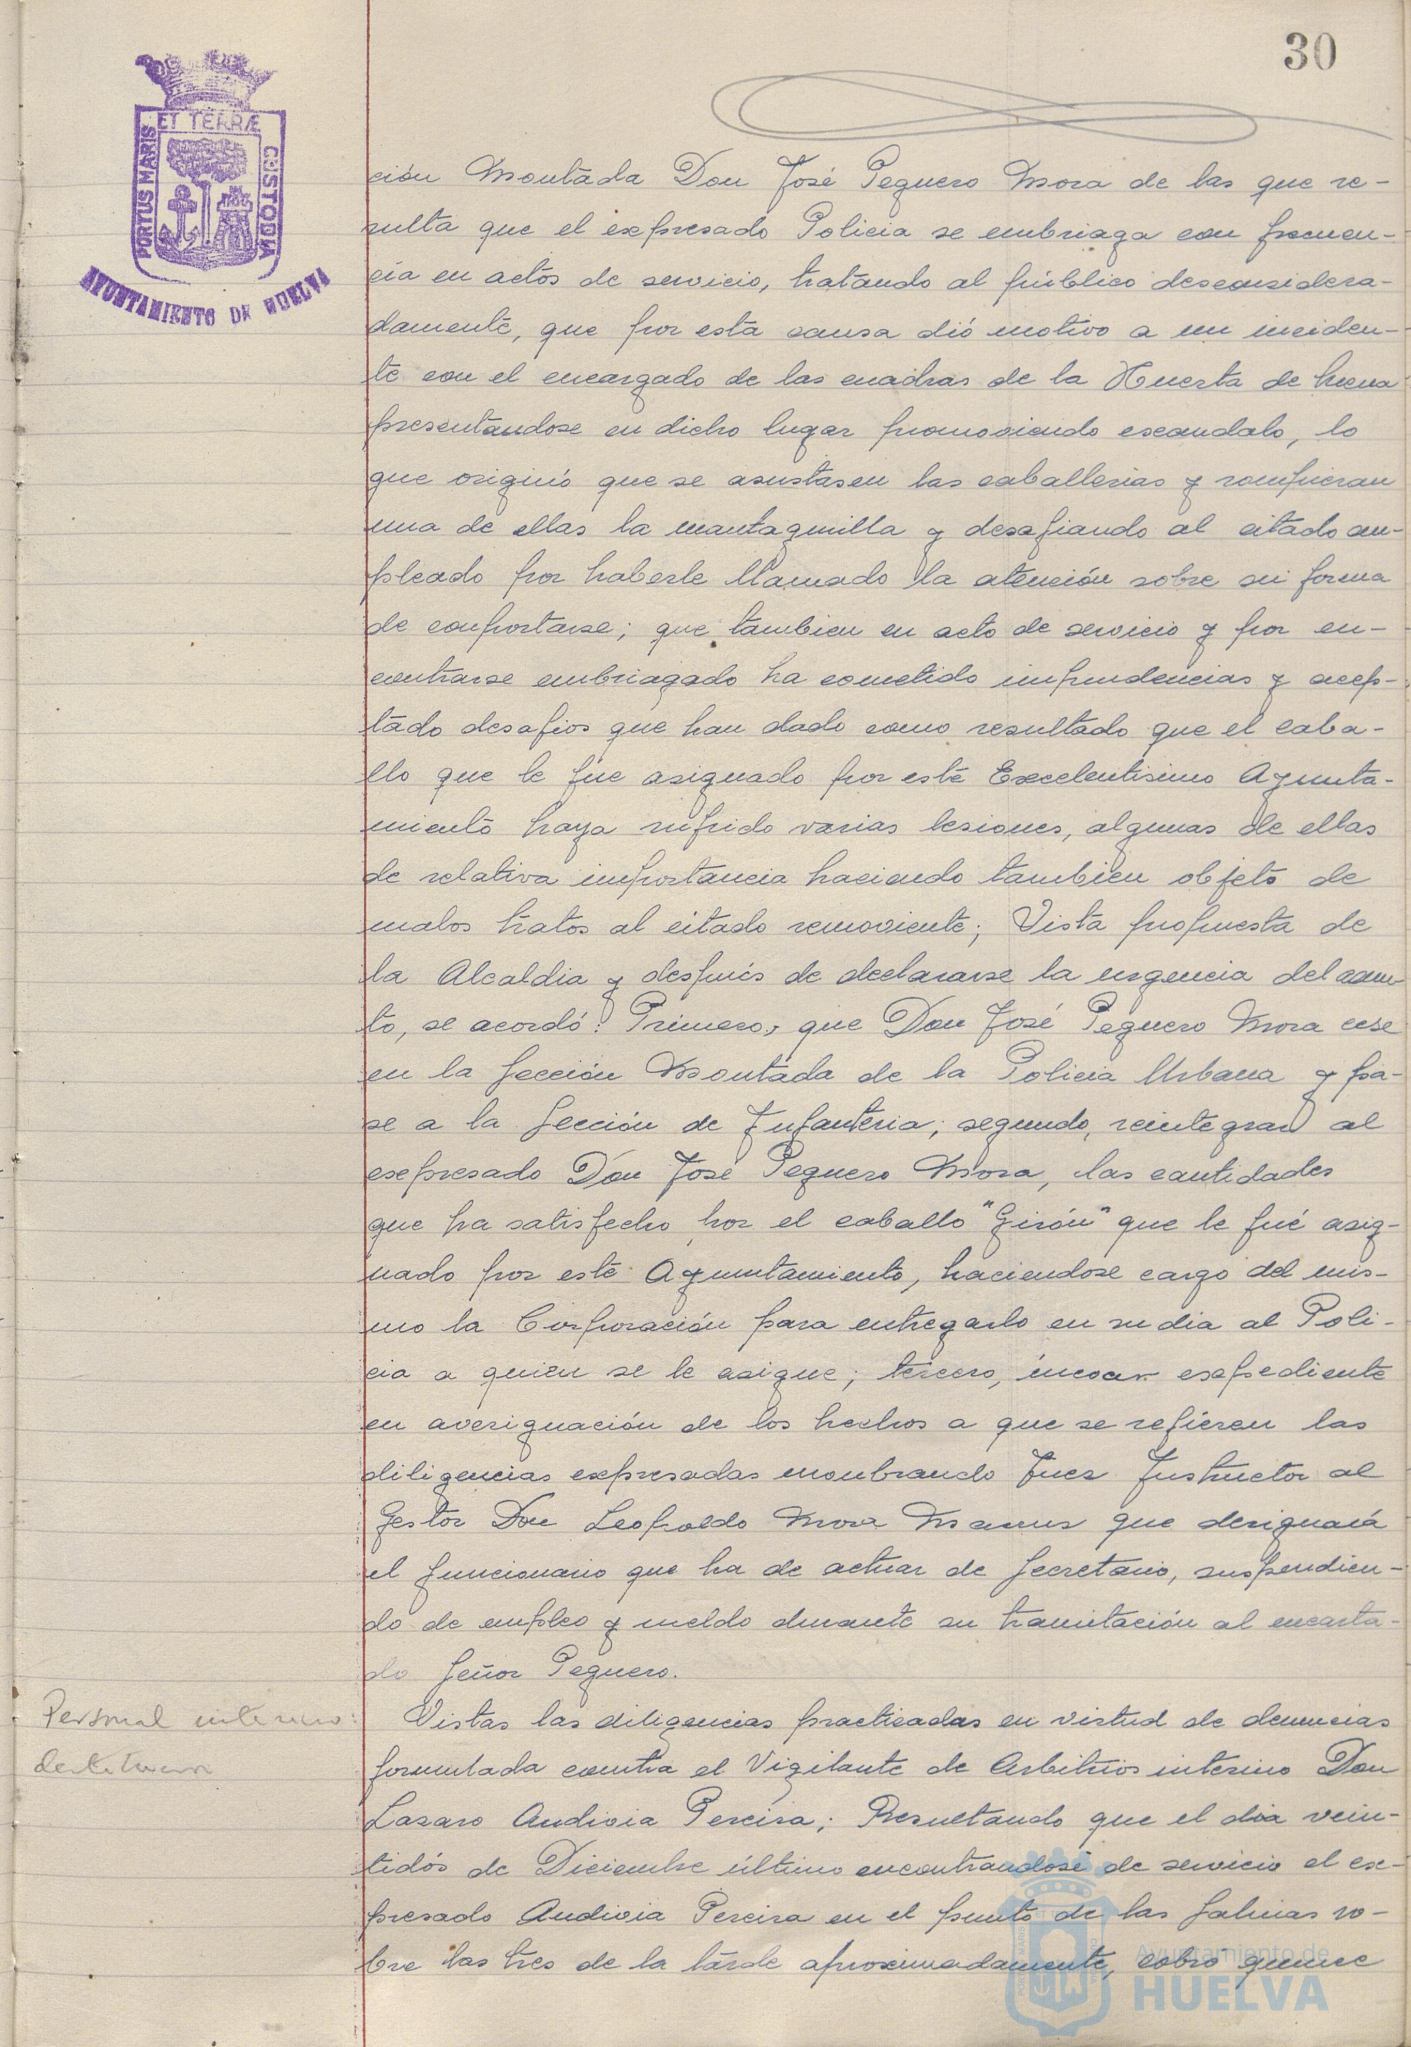 30
PORTUS MARIS ET TERRÆ CUSTODIA
AYUNTAMIENTO DE HUELVA
ción Montada Don José Peguero Mora de las que re-
sulta que el expresado Policia se embriaga con frecuen-
cia en actos de servicio, tratando al público desconsidera-
damente, que por esta causa dió motivo a un inciden-
te con el encargado de las cuadras de la Huerta de Mena
presentandose en dicho lugar promoviendo escandalo, lo
que originó que se asustasen las caballerias y rompieran
una de ellas la mantaquilla y desafiando al citado em-
pleado por haberle llamado la atención sobre su forma
de comportarse; que tambien en acto de servicio y por en-
contrarse embriagado ha cometido imprudencias y acep-
tado desafios que han dado como resultado que el caba-
llo que le fue asignado por este Excelentisimo Ayunta-
miento haya sufrido varias lesiones, algunas de ellas
de relativa importancia haciendo tambien objeto de
malos tratos al citado semoviente; Vista propuesta de
la Alcaldia y después de declararse la urgencia del asun-
to, se acordó: Primero, que Don José Peguero Mora cese
en la Sección Montada de la Policia Urbana y pa-
se a la Sección de Infanteria; segundo, reintegrar al
expresado Don José Peguero Mora, las cantidades
que ha satisfecho por el caballo "Girón" que le fué asig-
nado por este Ayuntamiento, haciendose cargo del mis-
mo la Corporación para entregarlo en su dia al Poli-
cia a quien se le asigne; tercero, incoar expediente
en averiguación de los hechos a que se refieren las
diligencias expresadas nombrando Juez Instructor al
Gestor Don Leopoldo Mora que designará
el funcionario que ha de actuar de Secretario, suspendien-
do de empleo y sueldo durante su tramitación al encarta-
do Señor Peguero.
Personal interino:
Vistas las diligencias practicadas en virtud de denuncias
formulada contra el Vigilante de Arbitrios interino Don
Lazaro Audivia Pereira; Resultando que el dia vein-
tidós de Diciembre último encontrandose de servicio el ex-
presado Audivia Pereira en el punto de las Salinas so-
bre las tres de la tarde aproximadamente, cobro quince
Ayuntamiento de
HUELVA